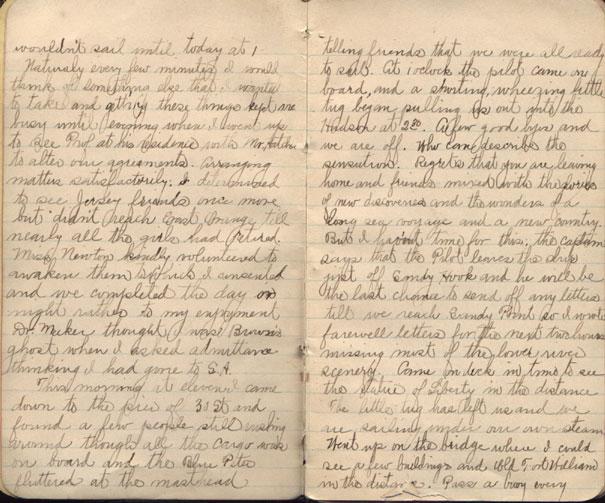 wouldn't sail until today at 1
Naturaly every few minutes I would
think of something else that I wanted
to take and getting these things kept me
busy until evening when I went up
to see Prof at his residence with Mr.
to alter our agreements. Arranging
matters satisfactorily. I determined
to see Jersey friends once more
but didn't reach East Orange till
nearly all the girls had retired.
Miss Newton kindly volunteered to
awaken them to which I consented
and we completed the day or
night rather to my enjoyment
Dr. Meker thought I was Brown's
ghost when I asked admittance
thinking I had gone to S.A.
This morning at eleven I came
down to the pier of 31 St and
found a few people still rushing
around though all the cargo was
on board and the Blue Peter
fluttered at the masthead
telling friends that we were all ready
to sail. At 1 oclock the pilot came on
board, and a snorting, wheezing little
tug began pulling us out into the
Hudson at 2.30 A few good byes and
we are off. Who can describe the
sensation. Regrets that you are leaving
home and friends mixed with the glories
of new discoveries and the wonders of a
long sea voyage and a new country.
But I havent time for this, the captain
says that the Pilot leaves the ship
just off Sandy Hook and he will be
the last chance to send off any letters
till we reach Sandy Point so I wrote
farewell letters for the next two hours
missing most of the lower river
scenery. Came on deck in time to see
the statue of Liberty in the distance
The little tug has left us and we
are sailing under our own steam
Went up on the bridge where I could
see a few buildings and Old Fort William
in the distance. Pass a buoy every